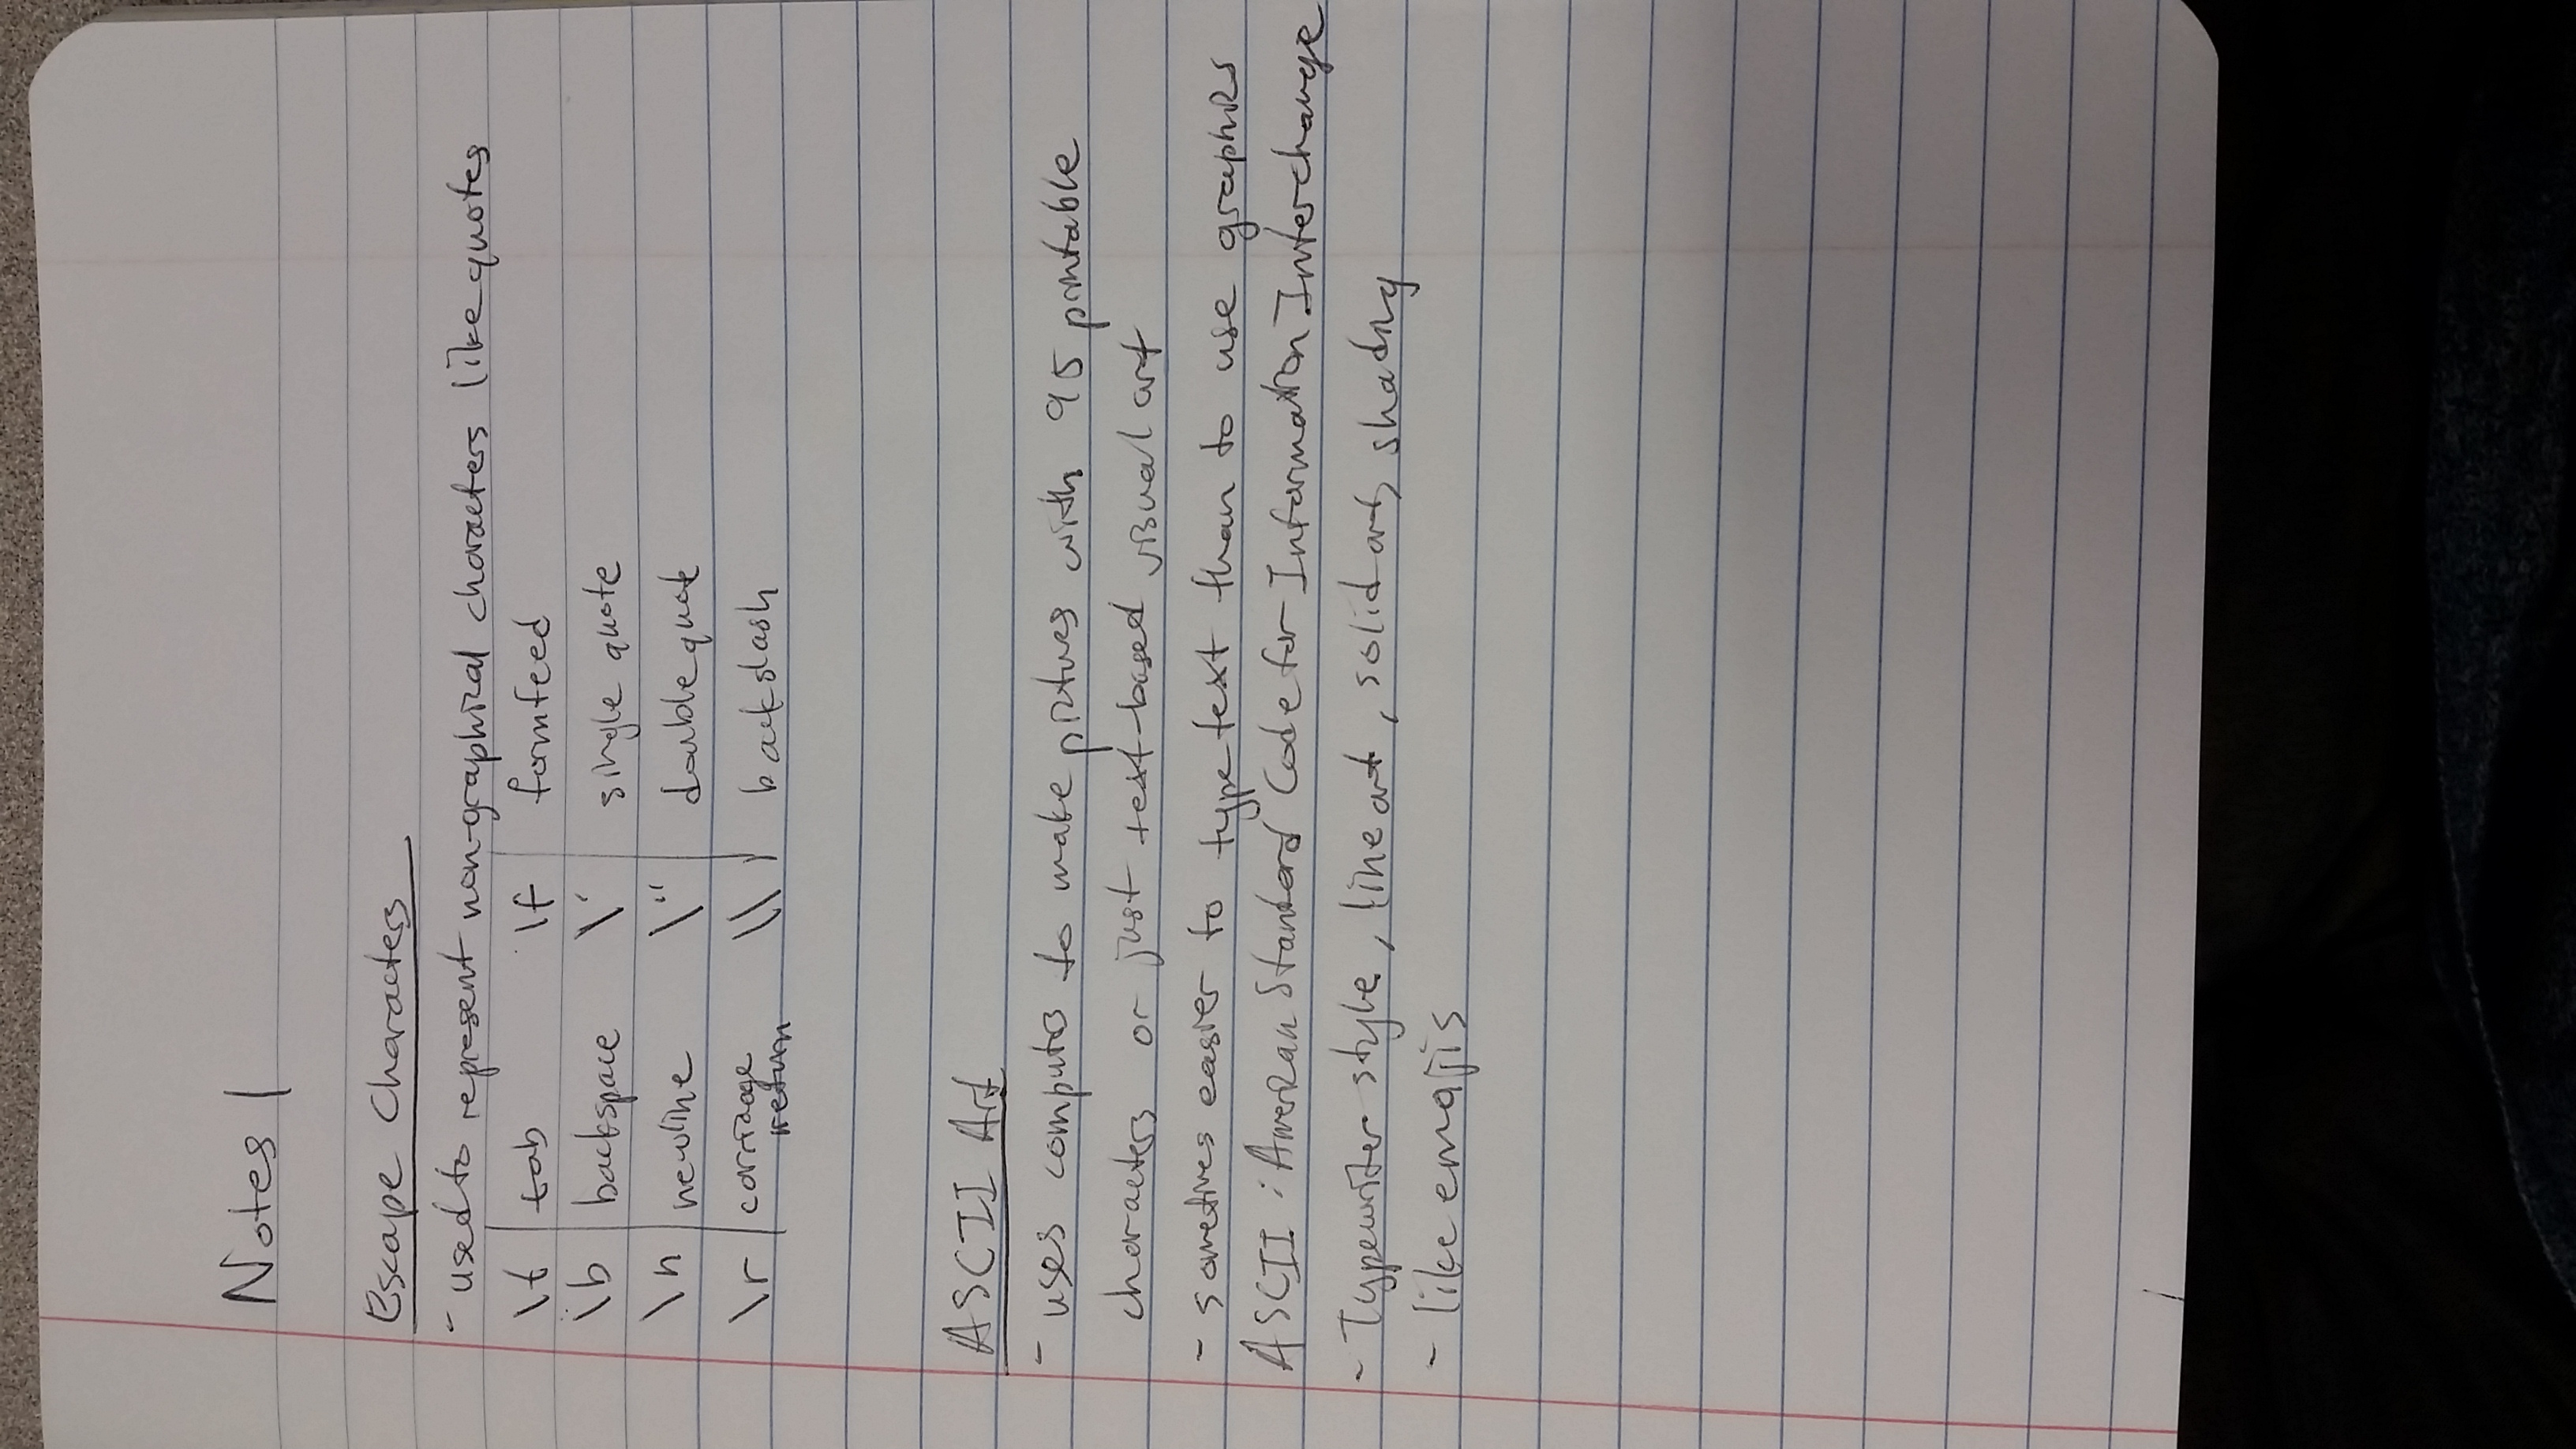 Notes 1
Escape Characters
- used to represent non-graphical characters like quotes
\t tab \f formfeed
\b backspace \' single quote
\n newline \" double quote
\r carriage return \\ backslash
ASCII Art
- uses computers to make pictures with 95 printable
characters or just text-based visual art
- sometimes easier to type text than to use graphics
ASCII : American Standard Code for Information Interchange
- Typewriter style, line art, solid art, shading
- like emojis